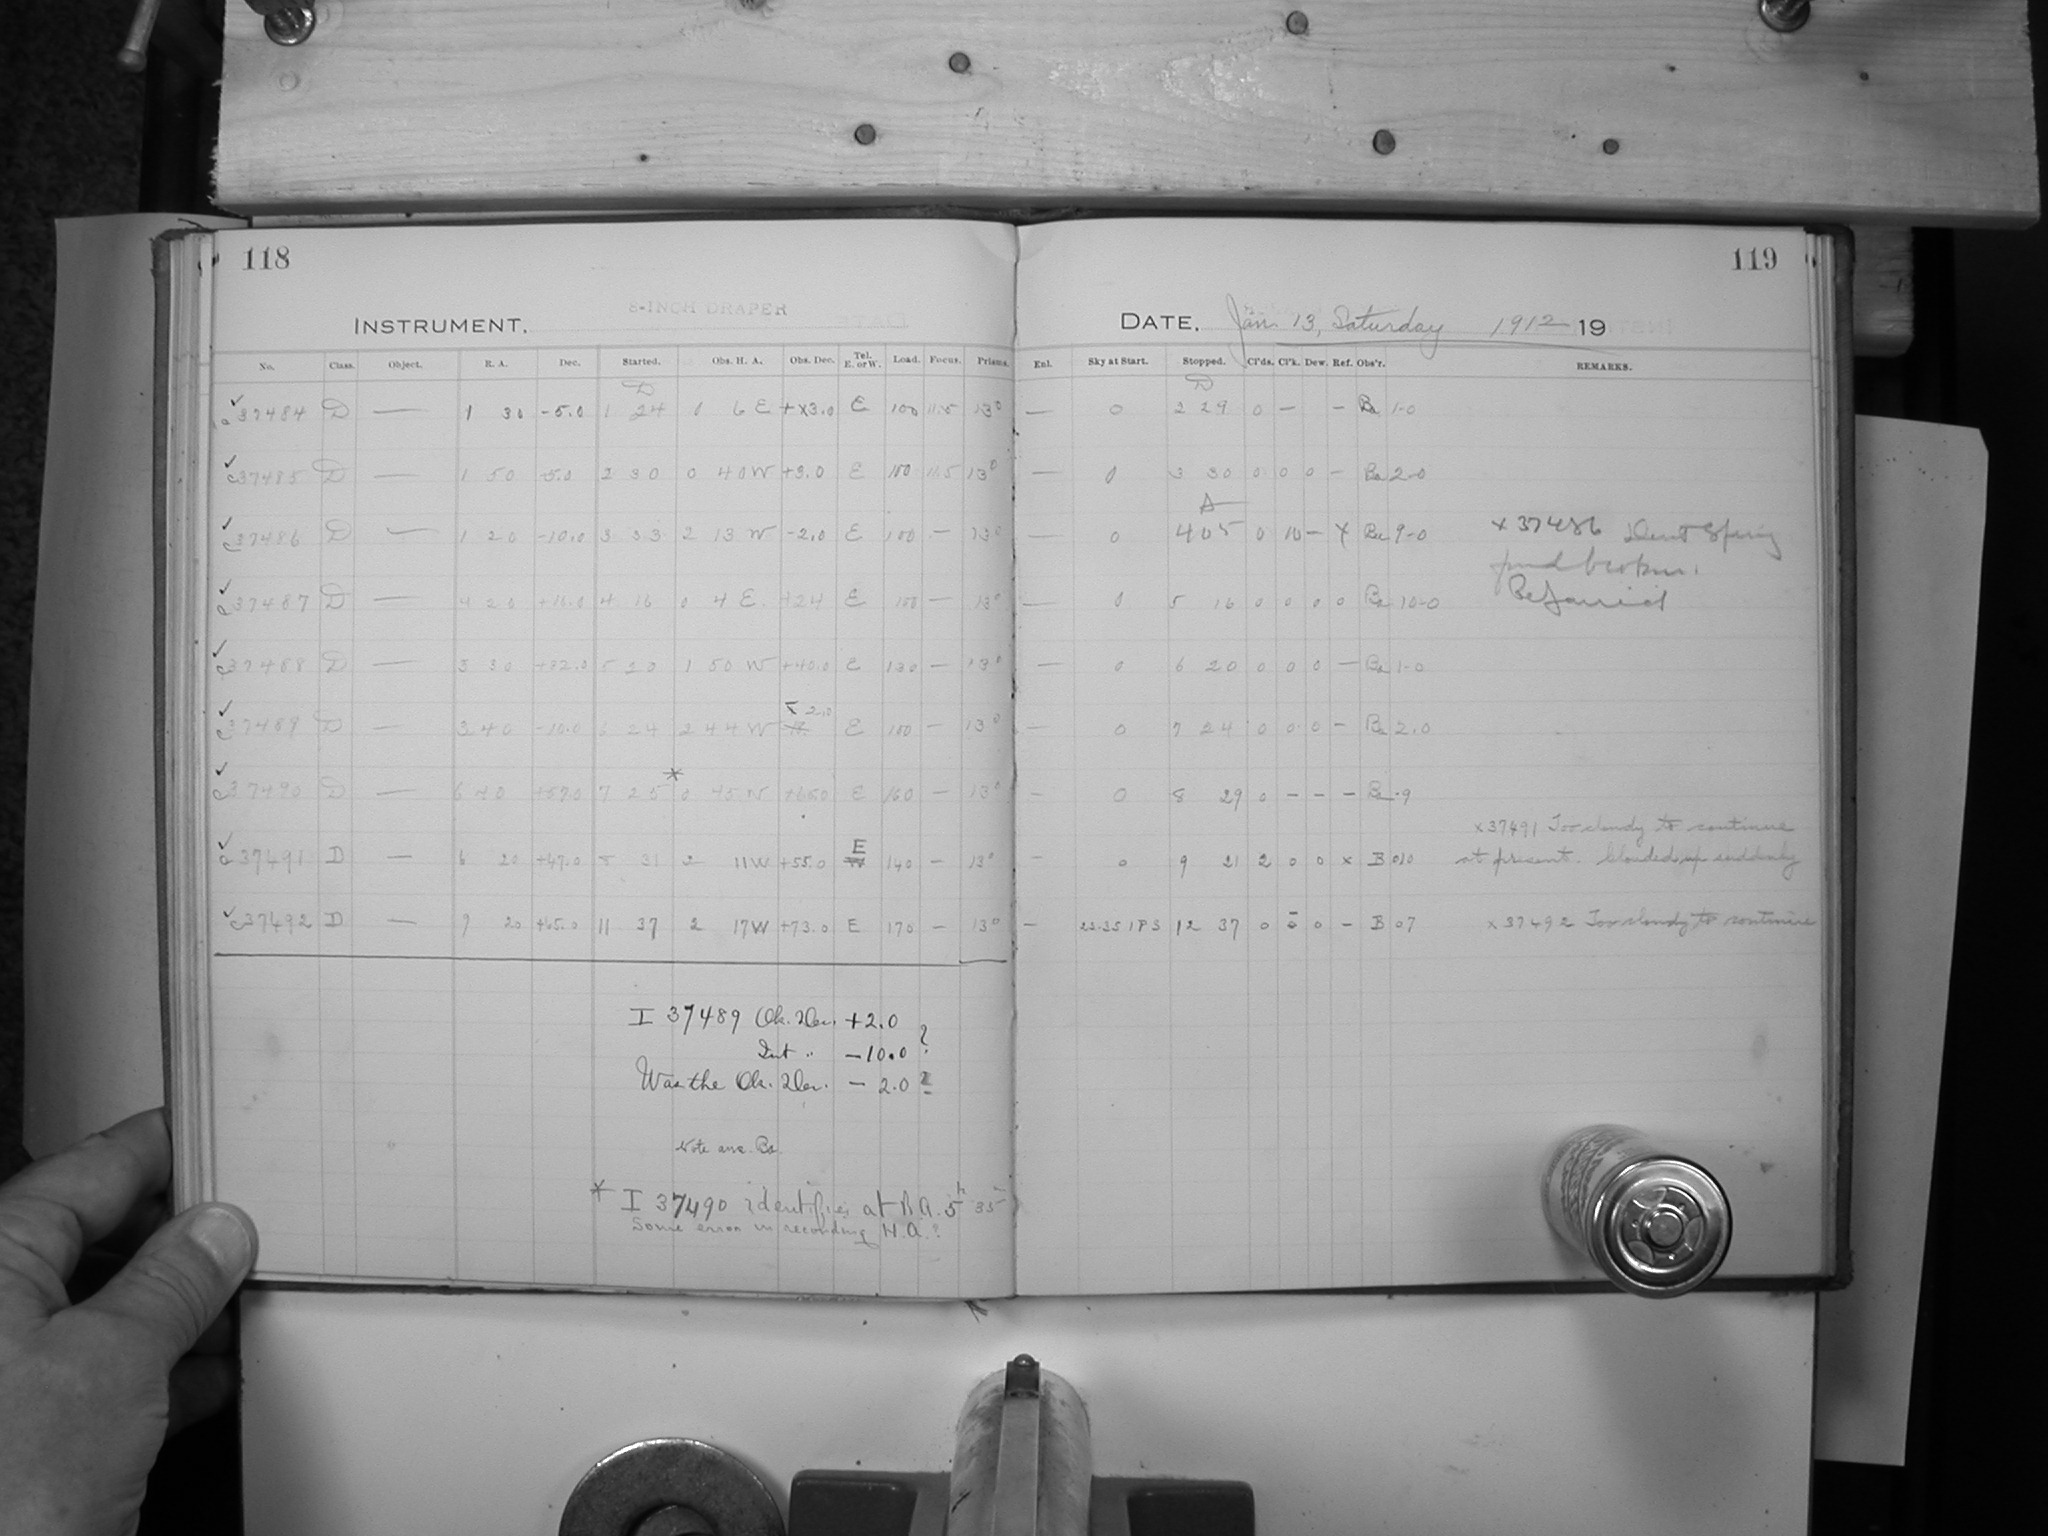 118
119
INSTRUMENT. 8-INCH DRAPER
DATE. Jan. 13, Saturday 1912 19
No. Class. Object. R. A. Dec. Started. Obs. H. A. Obs. Dec. Tel. E. or W. Load. Focus. Prisms. Enl. Sky at Start. Stopped. Cl'ds. Cl'k. Dew. Ref. Obs'r. REMARKS.
D D
c37484 D — 1 30 -5.0 1 24 0 6 E +x3.0 E 100 11.5 13° — 0 2 29 0 — – Ba 1-0
c37485 D — 1 50 -5.0 2 30 0 40 W +3.0 E 100 11.5 13° — 0 3 30 0 0 0 – Ba 2-0
c37486 D — 1 20 -10.0 3 33 2 13 W -2.0 E 100 – 13° — 0 4 05 0 10 – x Ba 9-0 x 37486
c37487 D — 4 20 +16.0 4 16 0 4 E +24 E 100 – 13° — 0 5 16 0 0 0 0 Ba 10-0
c37488 D — 3 30 +32.0 5 20 1 50 W +40.0 E 130 – 13° — 0 6 20 0 0 0 – Ba 1-0
2.0
c37489 D — 3 40 -10.0 6 24 2 44 W E 100 – 13° — 0 7 24 0 0 0 – Ba 2.0
c37490 D — 6 40 +57.0 7 25 * 0 45 W +65.0 E 160 – 13° – 0 8 29 0 – – – Ba .9
x 37491 Too cloudy to continue
c37491 D — 6 20 +47.0 8 31 2 11 W +55.0 E 140 – 13° – 0 9 21 2 0 0 x B 010 at present. Clouded up suddenly
c37492 D — 9 20 +65.0 11 37 2 17 W +73.0 E 170 – 13° – 23.35 1PS 12 37 0 0 0 – B 07 x 37492 Too cloudy to continue
I 37489 Ob. Dec. +2.0
Int " -10.0 ?
Was the Ob. Dec. - 2.0 ?
Note ans. Ba.
* I 37490 identifies at R.A. 5h 35
Some error in recording H.A.?